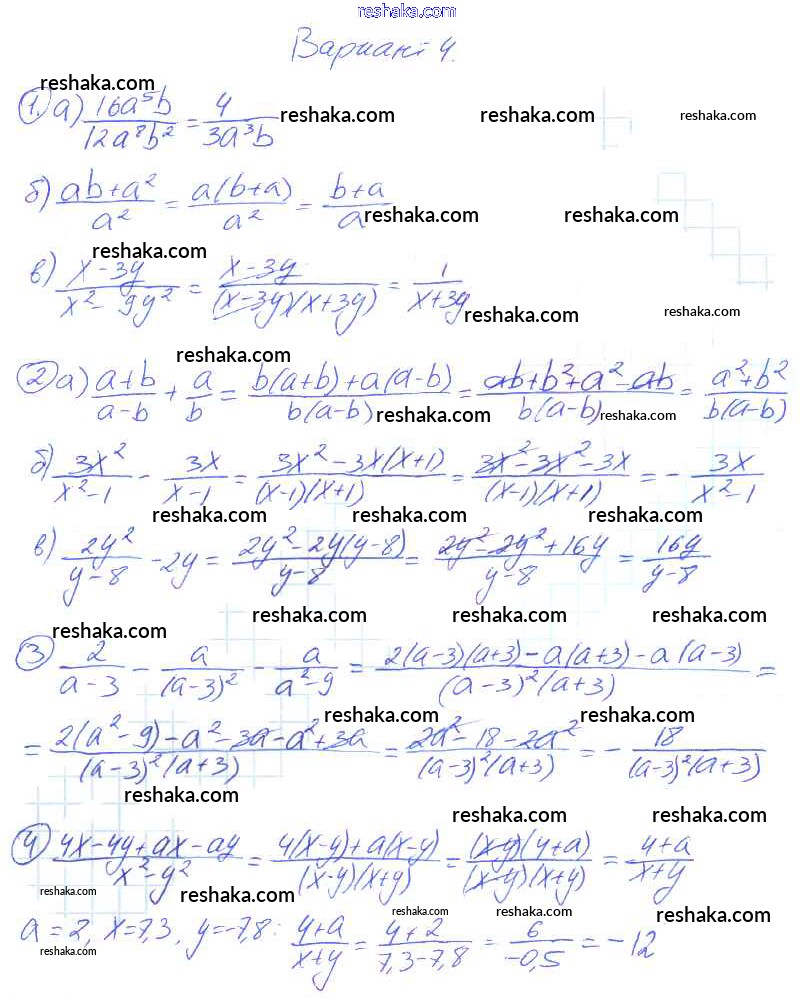 reshaka.com
Вариант 4.
reshaka.com
1. а) 16a⁵b/12a⁸b² = 4/3a³b reshaka.com reshaka.com reshaka.com
б) ab+a²/a² = a(b+a)/a² = b+a/a reshaka.com reshaka.com
reshaka.com
в) x-3y/x²-9y² = x-3y/(x-3y)(x+3y) = 1/x+3y reshaka.com reshaka.com
reshaka.com
2 а) a+b/a-b + a/b = b(a+b)+a(a-b)/b(a-b) = ab+b²+a²-ab/b(a-b) = a²+b²/b(a-b)
reshaka.com reshaka.com
б) 3x²/x²-1 - 3x/x-1 = 3x²-3x(x+1)/(x-1)(x+1) = 3x²-3x²-3x/(x-1)(x+1) = -3x/x²-1
reshaka.com reshaka.com reshaka.com
в) 2y²/y-8 - 2y = 2y²-2y(y-8)/y-8 = 2y²-2y²+16y/y-8 = 16y/y-8
reshaka.com reshaka.com reshaka.com
reshaka.com
3 2/a-3 - a/(a-3)² - a/a²-9 = 2(a-3)(a+3)-a(a+3)-a(a-3)/(a-3)²(a+3) =
reshaka.com reshaka.com
= 2(a²-9)-a²-3a-a²+3a/(a-3)²(a+3) = 2a²-18-2a²/(a-3)²(a+3) = -18/(a-3)²(a+3)
reshaka.com reshaka.com
reshaka.com reshaka.com
4 4x-4y+ax-ay/x²-y² = 4(x-y)+a(x-y)/(x-y)(x+y) = (x-y)(4+a)/(x-y)(x+y) = 4+a/x+y
reshaka.com reshaka.com reshaka.com
reshaka.com reshaka.com reshaka.com
a=2, x=7,3, y=-7,8: 4+a/x+y = 4+2/7,3-7,8 = 6/-0,5 = -12
reshaka.com